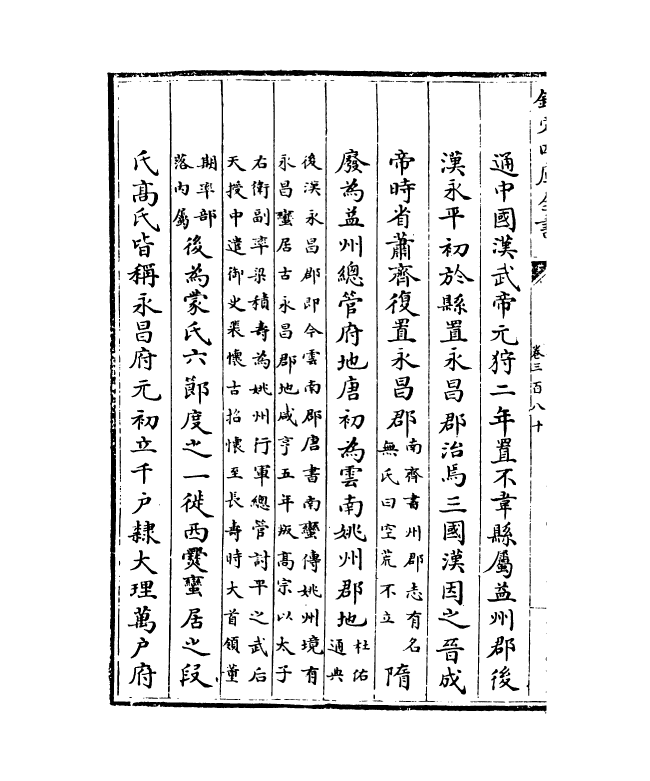 欽定四庫全書
卷三百八十
通中國漢武帝元狩二年置不韋縣屬益州郡後
漢永平初於縣置永昌郡治焉三國漢因之晉成
帝時省蕭齊復置永昌郡南齊書州郡志有名無氏曰空荒不立隋
廢為益州總管府地唐初為雲南姚州郡地杜佑通典
後漢永昌郡即今雲南郡唐書南蠻傳姚州境有
永昌蠻居古永昌郡地咸亨五年叛高宗以太子
右衛副率梁積壽為姚州行軍總管討平之武后
天授中遣御史裴懷古招懷至長壽時大首領董
期率部落內屬後為蒙氏六節度之一徙西爨蠻居之段
氏高氏皆稱永昌府元初立千户隸大理萬户府